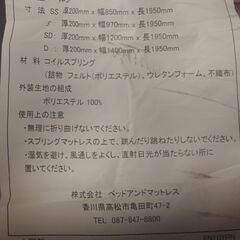 寸 法 SS:厚200mm x 幅850mm x 長1950mm
S :厚200mm x 幅970mm x 長1950mm
SD:厚200mm x 幅1200mm x 長1950mm
D :厚200mm x 幅1400mm x 長1950mm
材 料 コイルスプリング
(詰物 フェルト(ポリエステル)、ウレタンフォーム、不織布)
外装生地の組成
ポリエステル 100%
使用上の注意
・無理に折り曲げないでください。
・スプリングマットレスの上で、跳んだり跳ねたりしないでください。
・湿気を避け、風通しをよくし、直射日光が当たらない所に
置いてください。
株式会社 ベッドアンドマットレス
香川県高松市亀田町47-2
TEL 087-847-8800